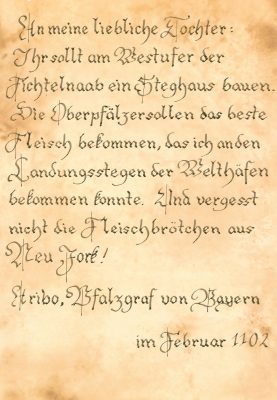 An meine liebliche Tochter:
Ihr sollt am Westufer der
Fichtelnaab ein Steghaus bauen.
Die Oberpfälzer sollen das beste
Fleisch bekommen, das ich an den
Landungsstegen der Welthäfen
bekommen konnte. Und vergesst
nicht die Fleischbrötchen aus
Neu Jork!
Aribo, Pfalzgraf von Bayern
im Februar 1102